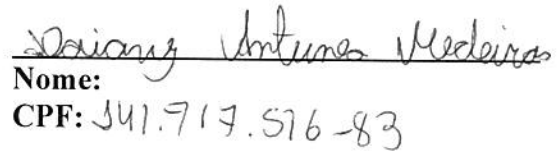 Daiany Antunes Medeiros
Nome:
CPF: 141.717.576-83